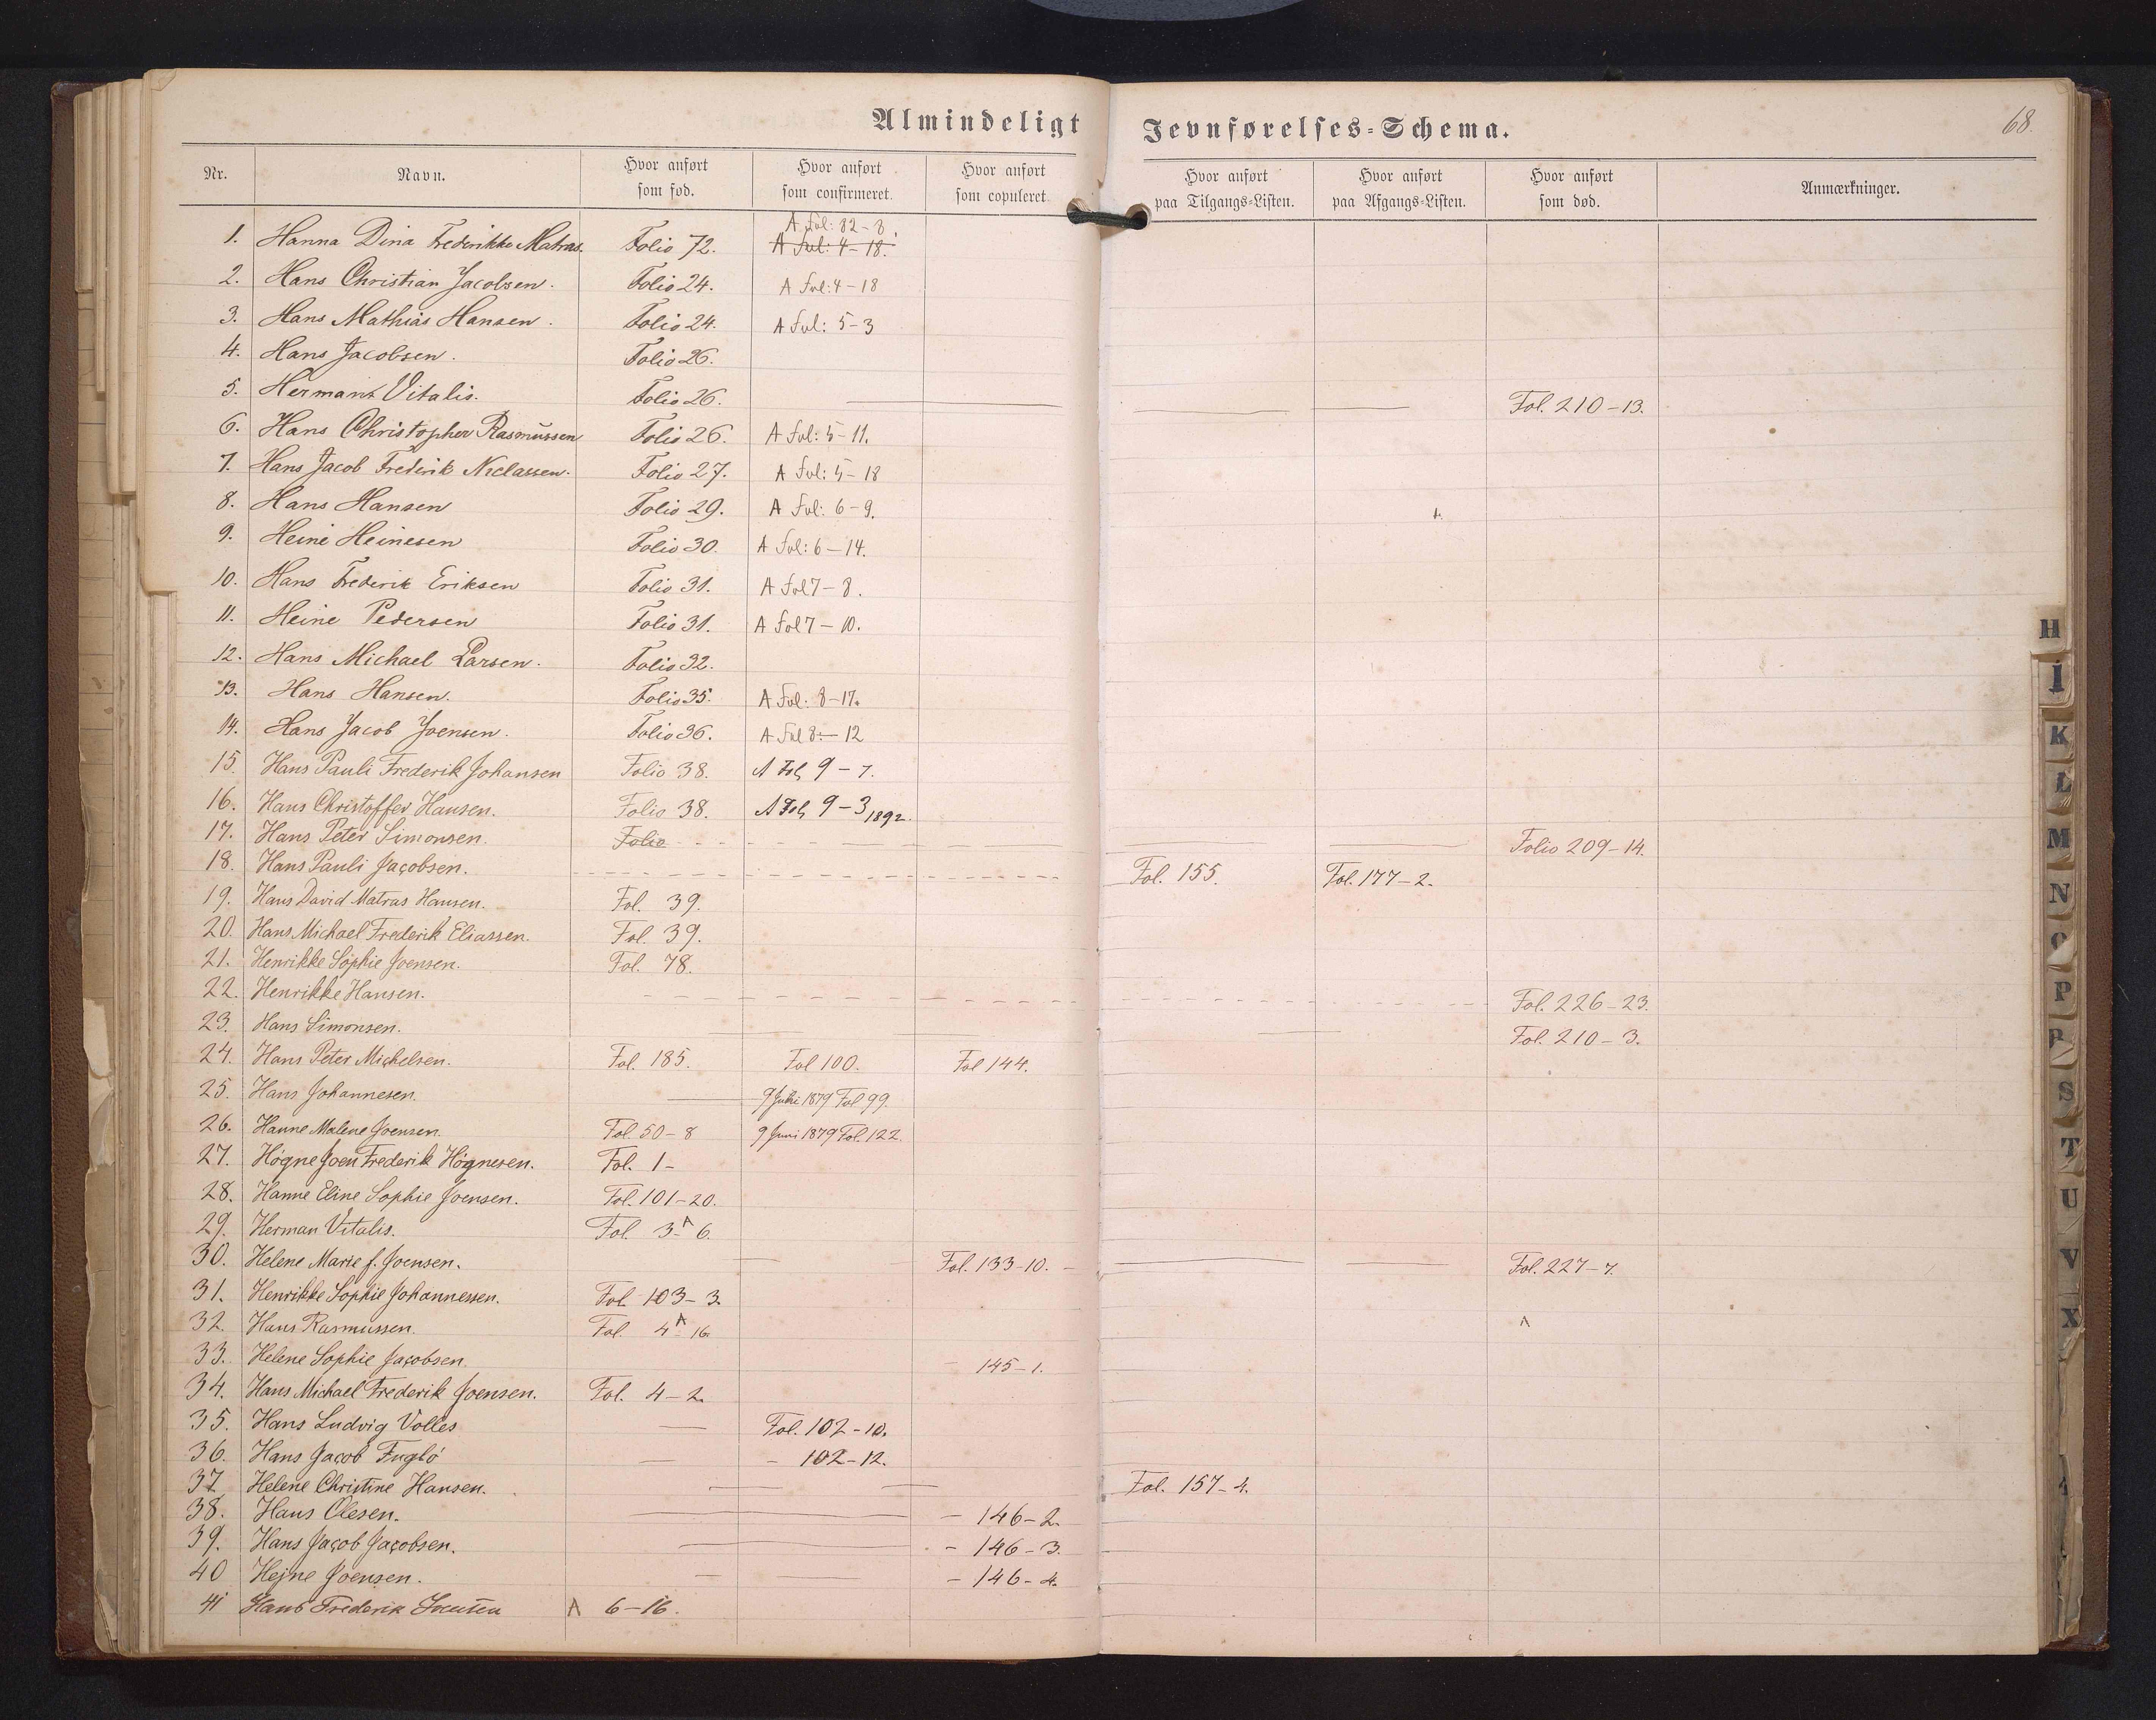 Almindeligt Jevnførelses-Schema.
68.
Nr. Navn. Hvor anført som fød. Hvor anført som confirmeret. Hvor anført som copuleret. Hvor anført paa Tilgangs-Listen. Hvor anført paa Afgangs-Listen. Hvor anført som død. Anmærkninger.
A Fol: 82-8.
1. Hanna Dina Frederikke Matras. Folio 72. A Fol: 4-18.
2. Hans Christian Jacobsen. Folio 24. A Fol: 4-18
3. Hans Mathias Hansen. Folio 24. A Fol: 5-3
4. Hans Jacobsen. Folio 26.
5. Hermant Vitalis. Folio 26. Fol. 210-13.
6. Hans Christopher Rasmussen Folio 26. A Fol: 5-11.
7. Hans Jacob Frederik Niclassen. Folio 27. A Fol: 5-18
8. Hans Hansen Folio 29. A Fol: 6-9.
9. Heine Heinesen Folio 30. A Fol: 6-14.
10. Hans Frederik Eriksen Folio 31. A Fol 7-8.
11. Heine Pedersen Folio 31. A Fol 7-10.
12. Hans Michael Larsen. Folio 32.
13. Hans Hansen. Folio 35. A Fol. 8-17.
14. Hans Jacob Joensen. Folio 36. A Fol 8-12
15. Hans Pauli Frederik Johansen Folio 38. A Fol, 9-7.
16. Hans Christoffer Hansen. Folio 38. A Fol, 9-3 1892.
17. Hans Peter Simonsen. Folio Folio 209-14.
18. Hans Pauli Jacobsen. Fol. 155. Fol. 177-2.
19. Hans David Matras Hansen. Fol. 39.
20. Hans Michael Frederik Eliassen. Fol. 39.
21. Henrikke Sophie Joensen. Fol. 78.
22. Henrikke Hansen. Fol. 226-23.
23. Hans Simonsen. Fol. 210-3.
24. Hans Peter Michelsen. Fol. 185. Fol 100. Fol 144.
25. Hans Johannesen. 9 Juni 1879 Fol 99.
26. Hanne Malene Joensen. Fol. 50-8 9 Juni 1879 Fol. 122.
27. Högne Joen Frederik Högnesen. Fol. 1-
28. Hanne Eline Sophie Joensen. Fol. 101-20.
29. Herman Vitalis. Fol. 3A-6.
30. Helene Marie f. Joensen. Fol. 133-10. Fol. 227-7.
31. Henrikke Sophie Johannessen. Fol 103-3.
32. Hans Rasmussen. Fol. 4A-16. A
33. Helene Sophie Jacobsen. - 145-1.
34. Hans Michael Frederik Joensen. Fol. 4-2.
35. Hans Ludvig Volles Fol. 102-10.
36. Hans Jacob Fuglö - 102-12.
37. Helene Christine Hansen. Fol. 157-4.
38. Hans Olesen. - 146-2.
39. Hans Jacob Jacobsen. - 146-3.
40 Hejne Joensen. - 146-4.
41 Hans Frederik A 6-16.
H
I
K
L
M
N
O
P
R
S
T
U
V
X